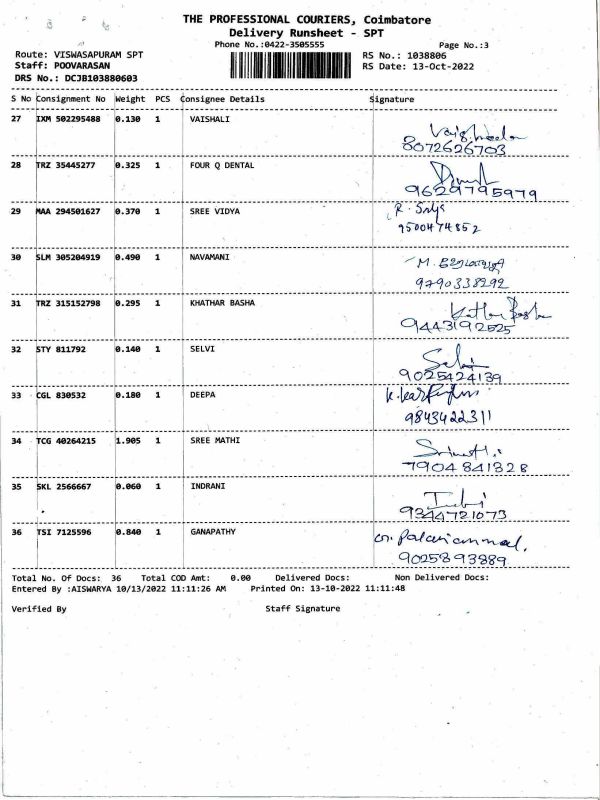 THE PROFESSIONAL COURIERS, Coimbatore
Delivery Runsheet - SPT
Phone No.:0422-3505555 Page No.:3
Route: VISWASAPURAM SPT RS No.: 1038806
Staff: POOVARASAN RS Date: 13-Oct-2022
DRS No.: DCJB103880603
S No Consignment No Weight PCS Consignee Details Signature
27 IXM 502295488 0.130 1 VAISHALI
8072626703
28 TRZ 35445277 0.325 1 FOUR Q DENTAL
9629795979
29 MAA 294501627 0.370 1 SREE VIDYA R.
9500474852
30 SLM 305204919 0.490 1 NAVAMANI M.
9790338292
31 TRZ 315152798 0.295 1 KHATHAR BASHA
9443192525
32 STY 811792 0.140 1 SELVI
9025424139
33 CGL 830532 0.180 1 DEEPA
9843422311
34 TCG 40264215 1.905 1 SREE MATHI
7904841328
35 SKL 2566667 0.060 1 INDRANI
9344721073
36 TSI 7125596 0.840 1 GANAPATHY Palaniammal.
9025893889
Total No. Of Docs: 36 Total COD Amt: 0.00 Delivered Docs: Non Delivered Docs:
Entered By :AISWARYA 10/13/2022 11:11:26 AM Printed On: 13-10-2022 11:11:48
Verified By Staff Signature